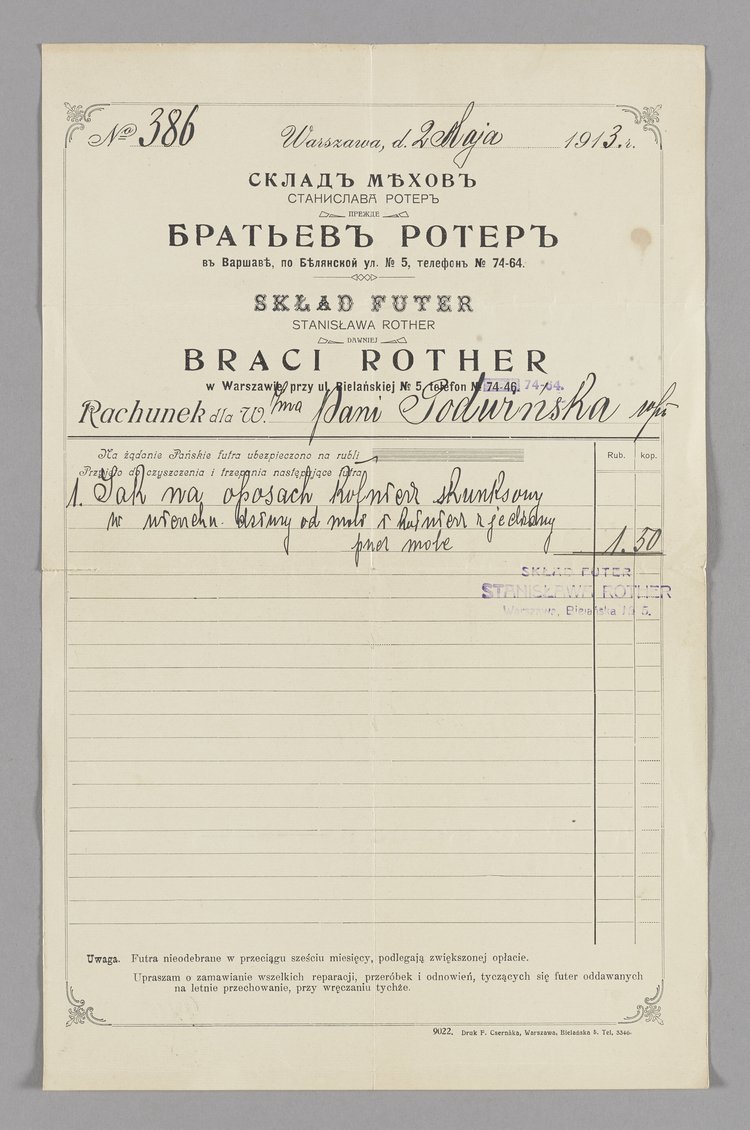 No 386 Warszawa, d. 2 Maja 1913.r.
СКЛАДЪ МѢХОВЪ
СТАНИСЛАВА РОТЕРЪ
ПРЕЖДЕ
БРАТЬЕВЪ РОТЕРЪ
въ Варшавѣ, по Бѣлянской ул. № 5, телефонъ № 74-64.
SKŁAD FUTER
STANISŁAWA ROTHER
DAWNIEJ
BRACI ROTHER
w Warszawie, przy ul. Bielańskiej № 5, telefon № 74-46. 74-64.
Rachunek dla W. Pani
Na żądanie Pańskie futra ubezpieczono na rubli
Rub. kop.
Przyjęto do czyszczenia i trzepania następujące futra
1. Żak na oposach kołnierz skunksowy
w dziury od moli i kołnierz zjedzony
przez mole 1.50
SKŁAD FUTER
STANISŁAWA ROTHER
Warszawa, Bielańska № 5.
Uwaga. Futra nieodebrane w przeciągu sześciu miesięcy, podlegają zwiększonej opłacie.
Upraszam o zamawianie wszelkich reparacji, przeróbek i odnowień, tyczących się futer oddawanych
na letnie przechowanie, przy wręczaniu tychże.
9022. Druk F. Czernáka, Warszawa, Bielańska 5. Tel. 3346.